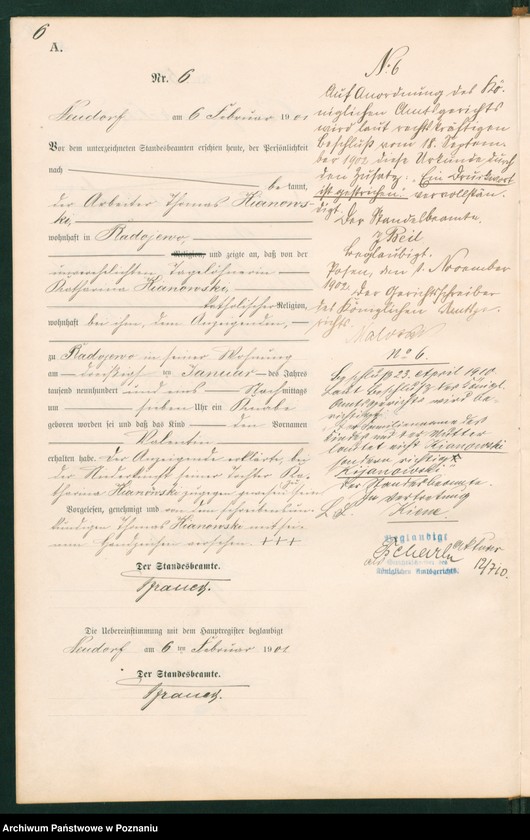 6
A.
Nr. 6
Neudorf am 6 Februar 1901
Vor dem unterzeichneten Standesbeamten erschien heute, der Persönlichkeit
nach
be kannt,
der Arbeiter Thomas Kianows-
ki,
wohnhaft in Radojewo,
Religion, und zeigte an, daß von der
unverehelichten Tagelöhnerin
Katharina Kianowski,
katholischer Religion,
wohnhaft bei ihm, dem Anzeigenden,
zu Radojewo in seiner Wohnung
am dreißigsten Januar des Jahres
tausend neunhundert und eins Nachmittags
um sieben Uhr ein Knabe
geboren worden sei und daß das Kind den Vornamen
Valentin
erhalten habe. Der Anzeigende erklärte, bei
der Niederkunft seiner Tochter Ka-
tharina Kianowski zugegen gewesen sein
Vorgelesen, genehmigt und von dem schreibensun-
kundigen Thomas Kianowski mit sei-
nem Handzeichen versehen. +++
Der Standesbeamte.
Die Uebereinstimmung mit dem Hauptregister beglaubigt
Neudorf am 6 ten Februar 1901
Der Standesbeamte.
N. 6
Auf Anordnung des Kö-
niglichen Amtsgerichts
wird laut rechtskräftigen
Beschluß vom 18. Septem-
ber 1902 diese Urkunde durch
den Zusatz: „Ein Druckwort
ist gestrichen." vervollstän-
digt.
Der Standesbeamte.
Beil
Beglaubigt.
Posen, den 1. November
1902.
Der Gerichtsschreiber
des Königlichen Amtsge-
richts.
No 6.
Beschluß 23. April 1910
Laut Beschluß des Königl.
Amtsgerichts wird be-
richtigt
Familienname des
Kindes und der Mutter
lautet nicht Kianowski
sondern richtig
"Kijanowski"
Der Standesbeamte.
In Vertretung
L. S.
Beglaubigt
als Gerichtsschreiber des
Königlichen Amtsgerichts.
Aktuar
12/7 10.
Archiwum Państwowe w Poznaniu